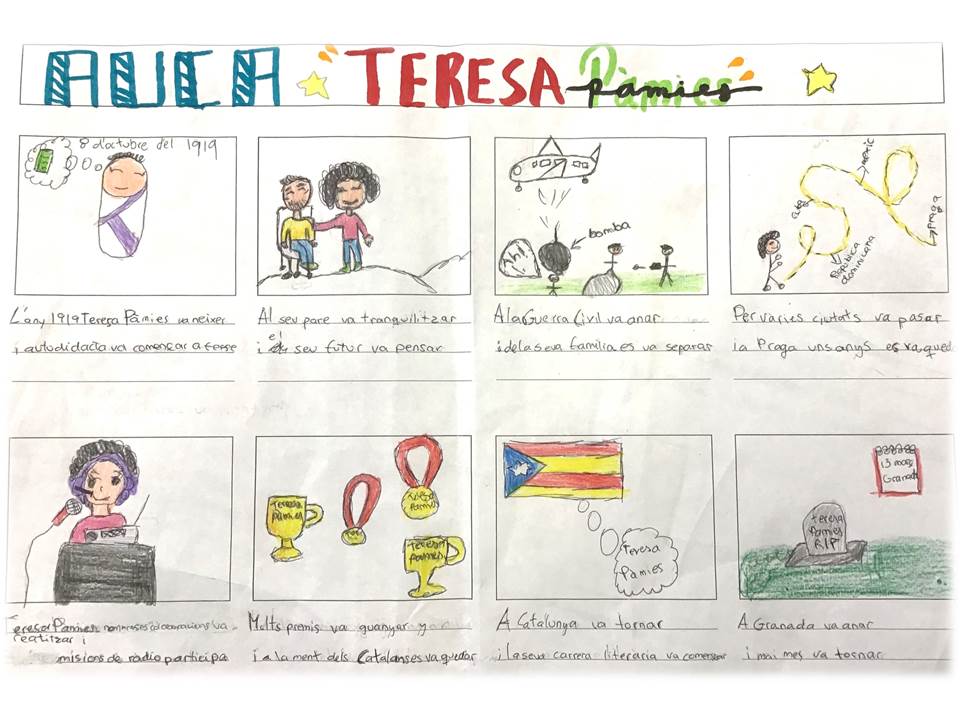 AUCA TERESA Pàmies
8 d'octubre del 1919
L'any 1919 Teresa Pàmies va neixer
i autodidacta va començar a ferse
Al seu pare va tranquilitzar
i el seu futur va pensar
bomba
A la Guerra Civil va anar
i de la seva familia es va separar
cuba
República dominicana
Praga
Per varies ciutats va pasar
i a Praga uns anys es va qued
Teresa Pàmies nomeroses col·laboracions va
reatitzar i
misions de radio participa
Teresa Pàmies
Teresa Pàmies
Teresa Pàmies
Molts premis va guanyar
i a la ment dels Catalanses va quedar
Teresa Pàmies
A Catalunya va tornar
i la seva carrera literaria va comensar
13 març
Granada
Teresa
Pamies
RIP
A Granada va anar
i mai mes va tornar